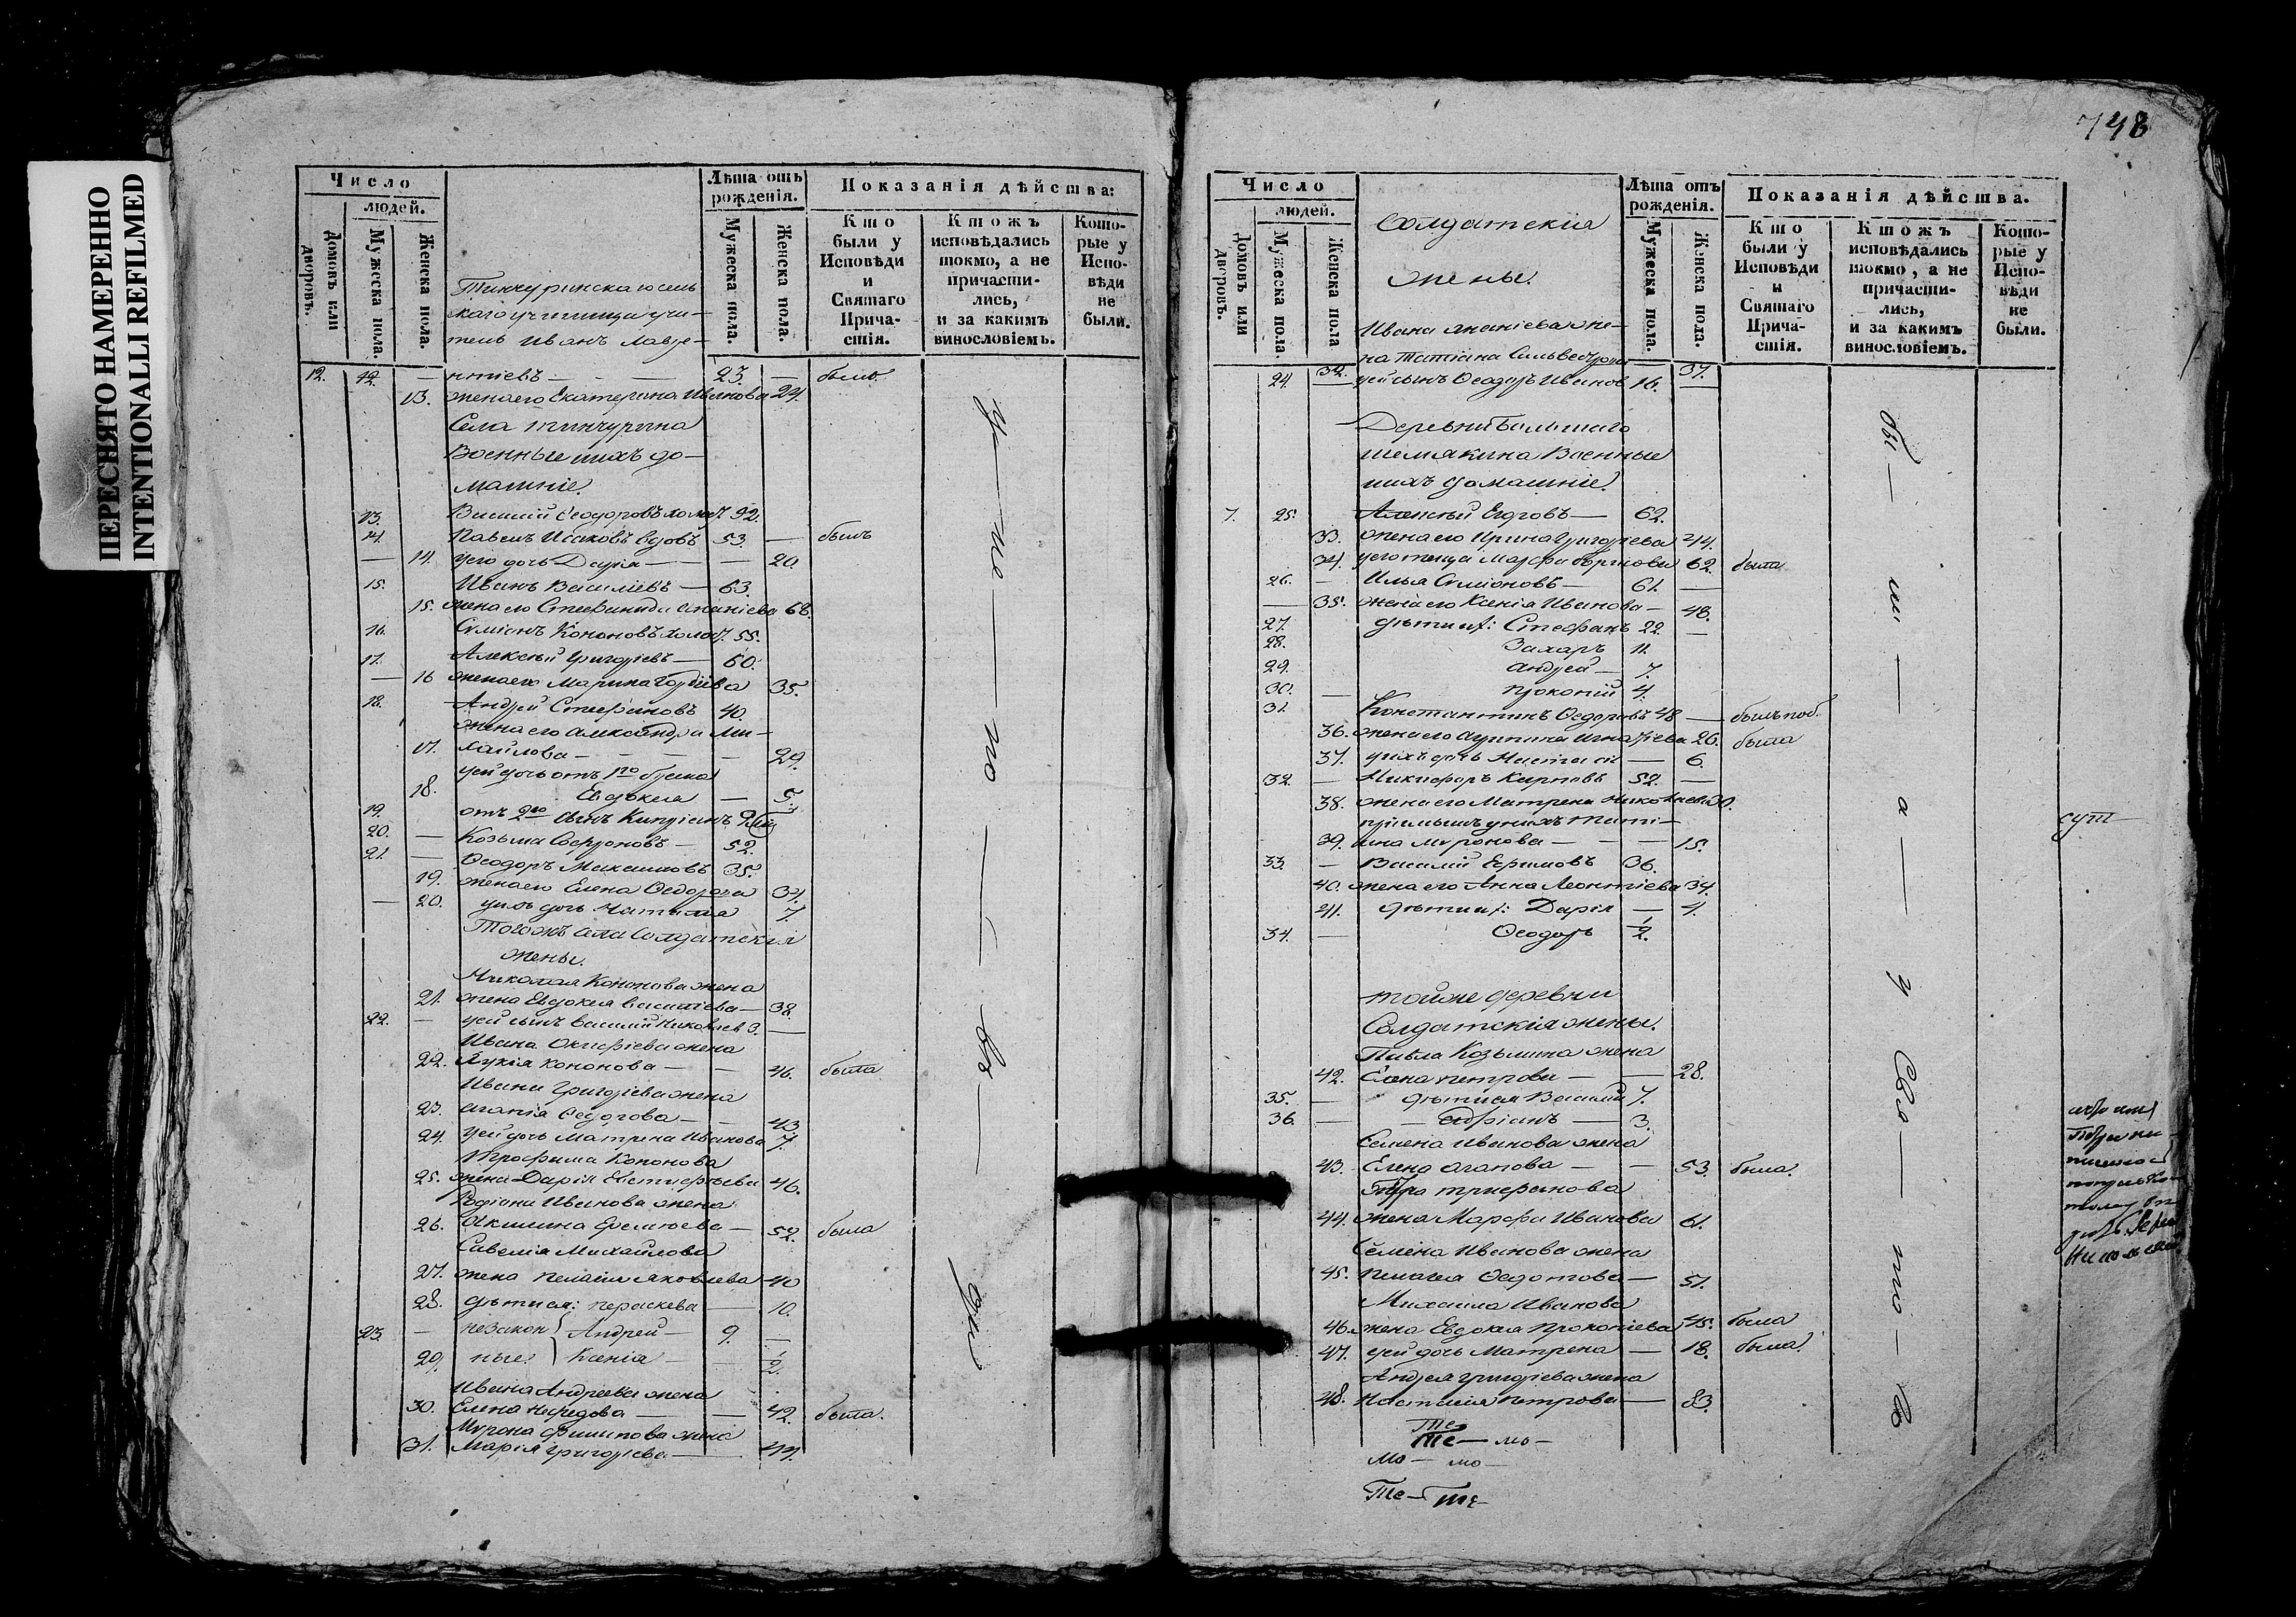 ПЕРЕСНЯТО НАМЕРЕННО
INTENTIONALLI REFILMED
Число
людей.
Домовъ или дворовъ.
Мужеска пола.
Женска пола.
Лѣта отъ рожденія.
Мужеска пола.
Женска пола.
Показанія дѣйства:
Кто были у Исповѣди и Святаго Причастія.
Ктожъ исповѣдались токмо, а не причастились, и за какимъ винословіемъ.
Которые у Исповѣди не были.
Тинчуринскаго сель
скаго училища учи-
тель Иванъ Лавре-
12. 12. — нтіевъ — 23. — былъ
13. жена его Екатерина Иванова 24.
Села Тинчурина
Военные и ихъ до-
машніе.
13. Василій Ѳеодоровъ холост 32.
14. Павелъ Исаковъ вдовъ 53. — былъ
— 14. у его дочь Дарія — — 20.
15. Иванъ Василіевъ — 63.
15. жена его Стефанида Ананіева 68.
16. Симіонъ Кононовъ холост. 55.
17. Алексѣй Григоріевъ — 60.
— 16 жена его Марина Гордіева 35.
18. Андрей Стефановъ 40.
жена его Александра Ми-
17. хайлова — — — 29.
у ей дочь отъ 1го брака
18. Евдокия — 5.
19. отъ 2го сынъ Кипріанъ
20. — Козьма Софроновъ — 52.
21. — Ѳеодоръ Максимовъ 35.
19. жена его Елена Ѳедорова 34.
— 20. у ихъ дочь Наталія 7.
Тогожъ села Солдатскія
жены.
Николая Кононова жена
21. жена Евдокия Василіева — 38.
22. — у ей сынъ Василій Николаев 3. —
Ивана жена
22. Лукія Кононова — — 46. была
Ивана Григоріева жена
23. Агапія Ѳедорова — — 43.
24. у ей дочь Матрена Иванова 7.
Трофима Кононова
25. жена Дарія Евстифѣева 46.
Родіона Иванова жена
26. Акилина — 52. была
Савелія Михайлова
27. жена Пелагия Яковлева 40
28. дѣти ея: Параскева — 10.
23. — незакон } Андрей — 9. —
29. ные. } Ксенія — — 1/2.
Ивана Андреева жена
30. Елена Нефедова — — 42. была.
Мирона Филипова жена
31. Марія Григоріева — — 44.
748
Число
людей.
Домовъ или дворовъ.
Мужеска пола.
Женска пола
Солдатския
жены.
Лѣта отъ рожденія.
Мужеска пола.
Женска пола.
Показанія дѣйства.
Кто были у Исповѣди и Святаго Причастія.
Ктожъ исповѣдались токмо, а не причастились, и за какимъ винословіемъ.
Которые у Исповѣди не были.
Ивана Ананіева же-
32. на Татіана Сильвестрова 37.
24. — у ей сынъ Ѳеодоръ Иванов 16. —
Деревни Большаго
Шемякина Военные
и ихъ домашніе.
7. 25. Алексѣй Егоровъ — 62.
33. жена его Ирина Григорьева 44.
34. у его теща Марфа 62. была
26. — Илья Симіоновъ — 61. —
— 35. жена его Ксенія Иванова — 48.
27. дѣти их: Стефанъ 22. —
28. Захаръ 11.
29. Андрей — 7.
30. — Прокопій 4.
31. Константинъ Ѳедоровъ 48 —
36. жена его Агрипина Игнатіева 26. была
37. у ихъ дочь — 6.
32. — Никифоръ Карповъ 52. —
38. жена его Матрена Николаева
приемышъ у нихъ Тати-
39. ана Миронова — — — 15.
33. — Василій Ефимовъ 36.
40. жена его Анна Леонтіева 34.
41. дѣти их: Дарія — 4.
34. — Ѳеодоръ 1/2.
тойже деревни
Солдатския жены.
Павла Козьмина жена
42. Елена Петрова — — 28.
35. — дѣти ея Василій 7.
36. — — Адріанъ — 3.
Семена Иванова жена
43. Елена Агапова — — 53. была.
Трифанова
44. жена Марфа Иванова 61.
Семена Иванова жена
45. Пелагея Ѳедотова — 51.
Михаила Иванова
46. жена Евдокия Прокопіева 45. была
47. у ей дочь Матрена — 18. была.
Андрея Григоріева жена
48. Наталия Петрова — 83.
Те
Те — мо —
мо — мо —
Те — те —